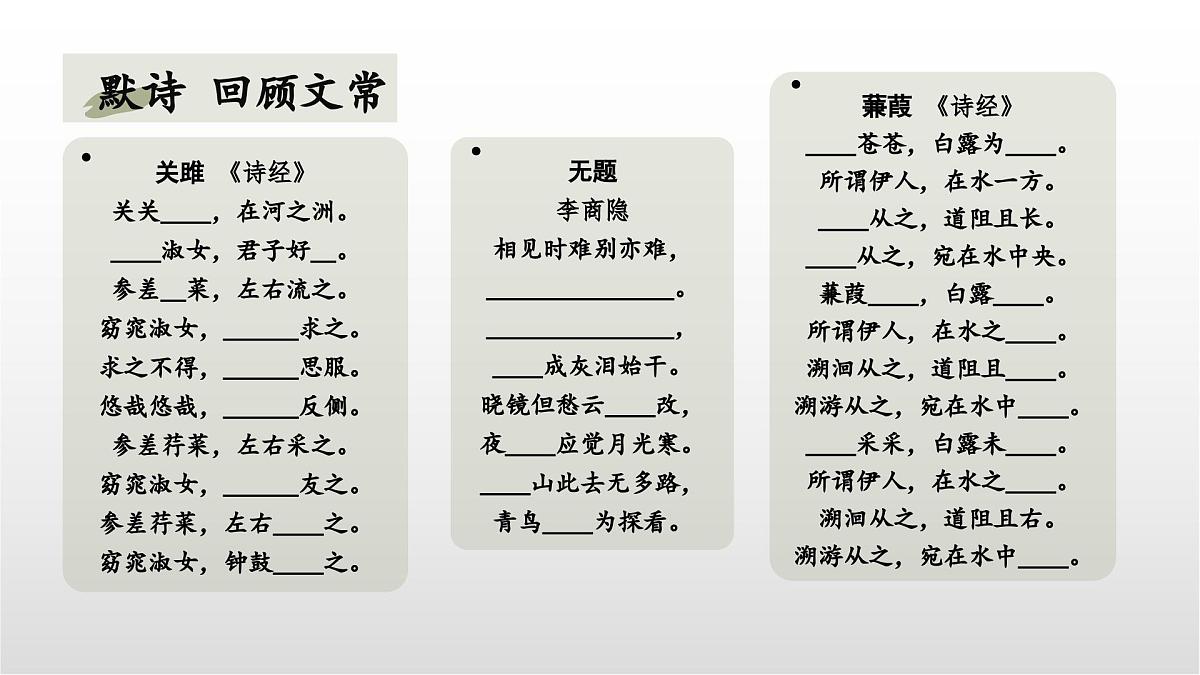 默诗 回顾文常
关雎 《诗经》
关关____，在河之洲。
____淑女，君子好__。
参差__菜，左右流之。
窈窕淑女，______求之。
求之不得，______思服。
悠哉悠哉，______反侧。
参差荇菜，左右采之。
窈窕淑女，______友之。
参差荇菜，左右____之。
窈窕淑女，钟鼓____之。
无题
李商隐
相见时难别亦难，
_______________。
_______________，
____成灰泪始干。
晓镜但愁云____改，
夜____应觉月光寒。
____山此去无多路，
青鸟____为探看。
蒹葭 《诗经》
____苍苍，白露为____。
所谓伊人，在水一方。
____从之，道阻且长。
____从之，宛在水中央。
蒹葭____，白露____。
所谓伊人，在水之____。
溯洄从之，道阻且____。
溯游从之，宛在水中____。
____采采，白露未____。
所谓伊人，在水之____。
溯洄从之，道阻且右。
溯游从之，宛在水中____。